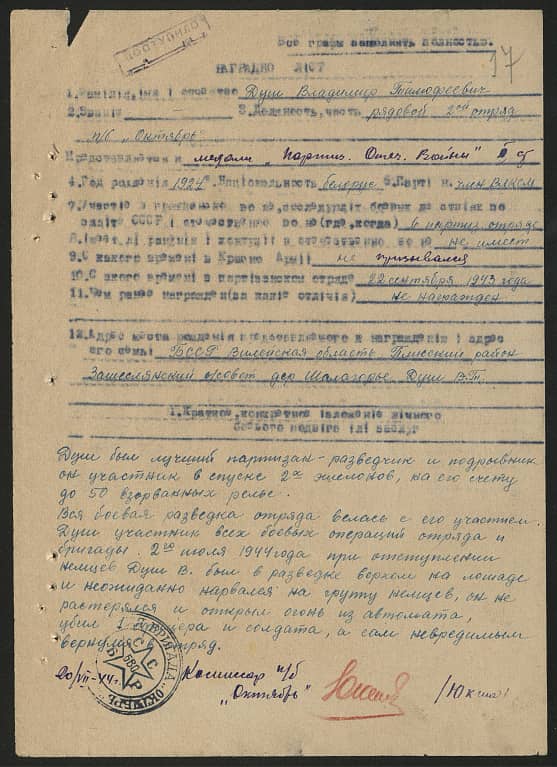 17
Все графы заполнить полностью.
НАГРАДНО ЛIСТ
1. Фамiлiя, iмя i отчество Душ Владимир Тимофеевич
2. Званiе 3. Должность, часть рядовой 2ой отряд
п/б "Октябрь"
Представляется к медали "Партиз. Отеч. Войны" II ст
4. Год рожденiя 1924 г. Нацiональность белорус 6. Партi н. член ВЛКСМ
7. Участiе в гражданско во но, последующiх боевых де ствiях по
защiте СССР i отечественно во но (где, когда) в партиз отряде
8. Iмеет лi раненiя i контузi в отечественно во но не имеет
9. С какого временi в Красно Армi не призывался
10. С какого временi в партiзанском отряде 22 сентября 1943 года
11. Чем ранее награжден (за какiе отлiчiя) не награжден
12. Адрес места рожденiя представляемого к награжденiю i адрес
его семьi БССР Виленская область Плисский район
с/совет дер Шалагорье Душ В.Т.
1. Краткое, конкретное iзложенiе лiчного
боевого подвiга iлi заслуг
Душ был лучший партизан-разведчик и подрывник
он участник в спуске 2х эшелонов, на его счету
до 50 взорванных рельс.
Вся боевая разведка отряда велась с его участием.
Душ участник всех боевых операций отряда и
бригады. 2го июля 1944 года при отступлении
немцев Душ В. был в разведке верхом на лошаде
и неожиданно нарвался на группу немцев, он не
растерялся и открыл огонь из автомата,
убил 1 офицера и солдата, а сам невредимым
вернулся в отряд.
20/VII-44г. Комиссар п/б
"Октябрь"
БРИГАДА "ОКТЯБРЬ"
С С Р Б